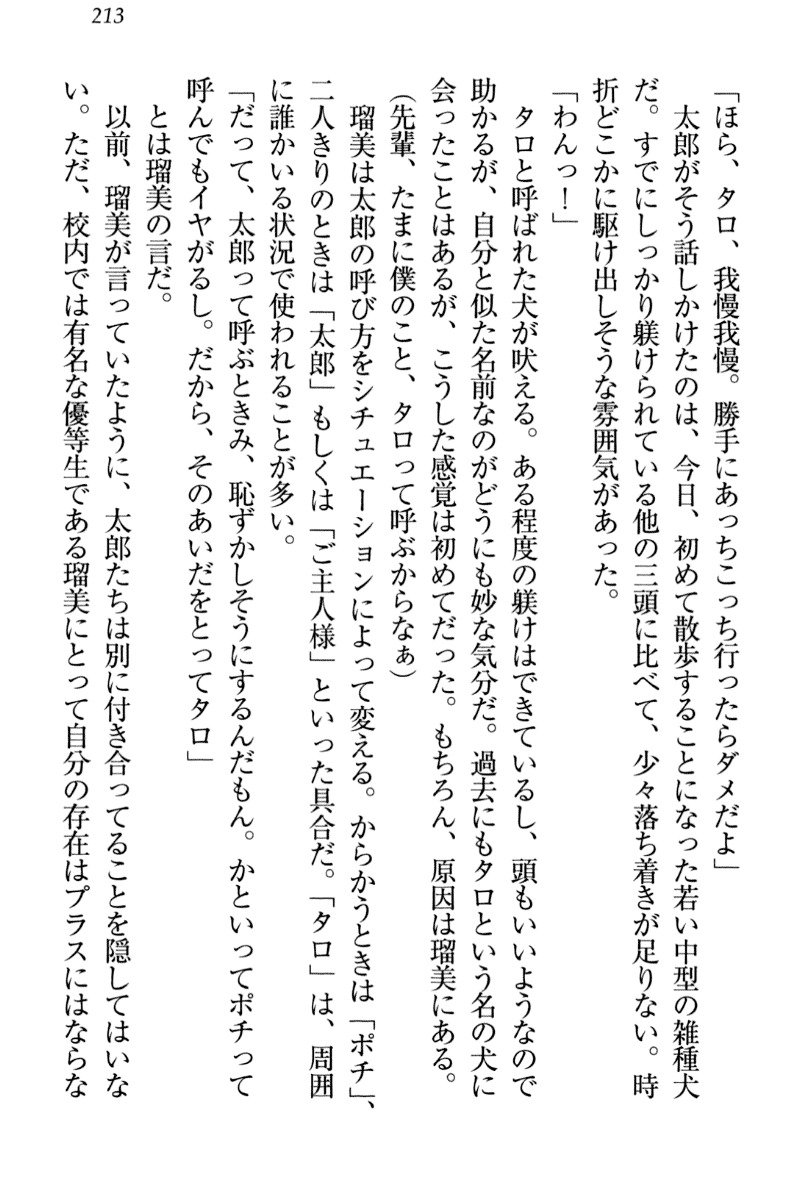 213
「ほら、タロ、我慢我慢。勝手にあっちこっち行ったらダメだよ」
　太郎がそう話しかけたのは、今日、初めて散歩することになった若い中型の雑種犬
だ。すでにしっかり躾けられている他の三頭に比べて、少々落ち着きが足りない。時
折どこかに駆け出しそうな雰囲気があった。
「わんっ！」
　タロと呼ばれた犬が吠える。ある程度の躾けはできているし、頭もいいようなので
助かるが、自分と似た名前なのがどうにも妙な気分だ。過去にもタロという名の犬に
会ったことはあるが、こうした感覚は初めてだった。もちろん、原因は瑠美にある。
（先輩、たまに僕のこと、タロって呼ぶからなぁ）
　瑠美は太郎の呼び方をシチュエーションによって変える。からかうときは「ポチ」、
二人きりのときは「太郎」もしくは「ご主人様」といった具合だ。「タロ」は、周囲
に誰かいる状況で使われることが多い。
「だって、太郎って呼ぶときみ、恥ずかしそうにするんだもん。かといってポチって
呼んでもイヤがるし。だから、そのあいだをとってタロ」
　とは瑠美の言だ。
　以前、瑠美が言っていたように、太郎たちは別に付き合ってることを隠してはいな
い。ただ、校内では有名な優等生である瑠美にとって自分の存在はプラスにはならな